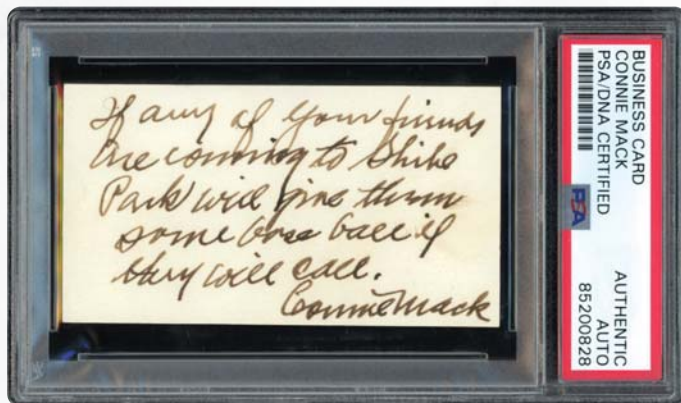 If any of your friends
are coming to Shibe
Park will give them
some base ball if
they will call.
Connie Mack
BUSINESS CARD
CONNIE MACK
PSA/DNA CERTIFIED
PSA
AUTHENTIC
AUTO
85200828